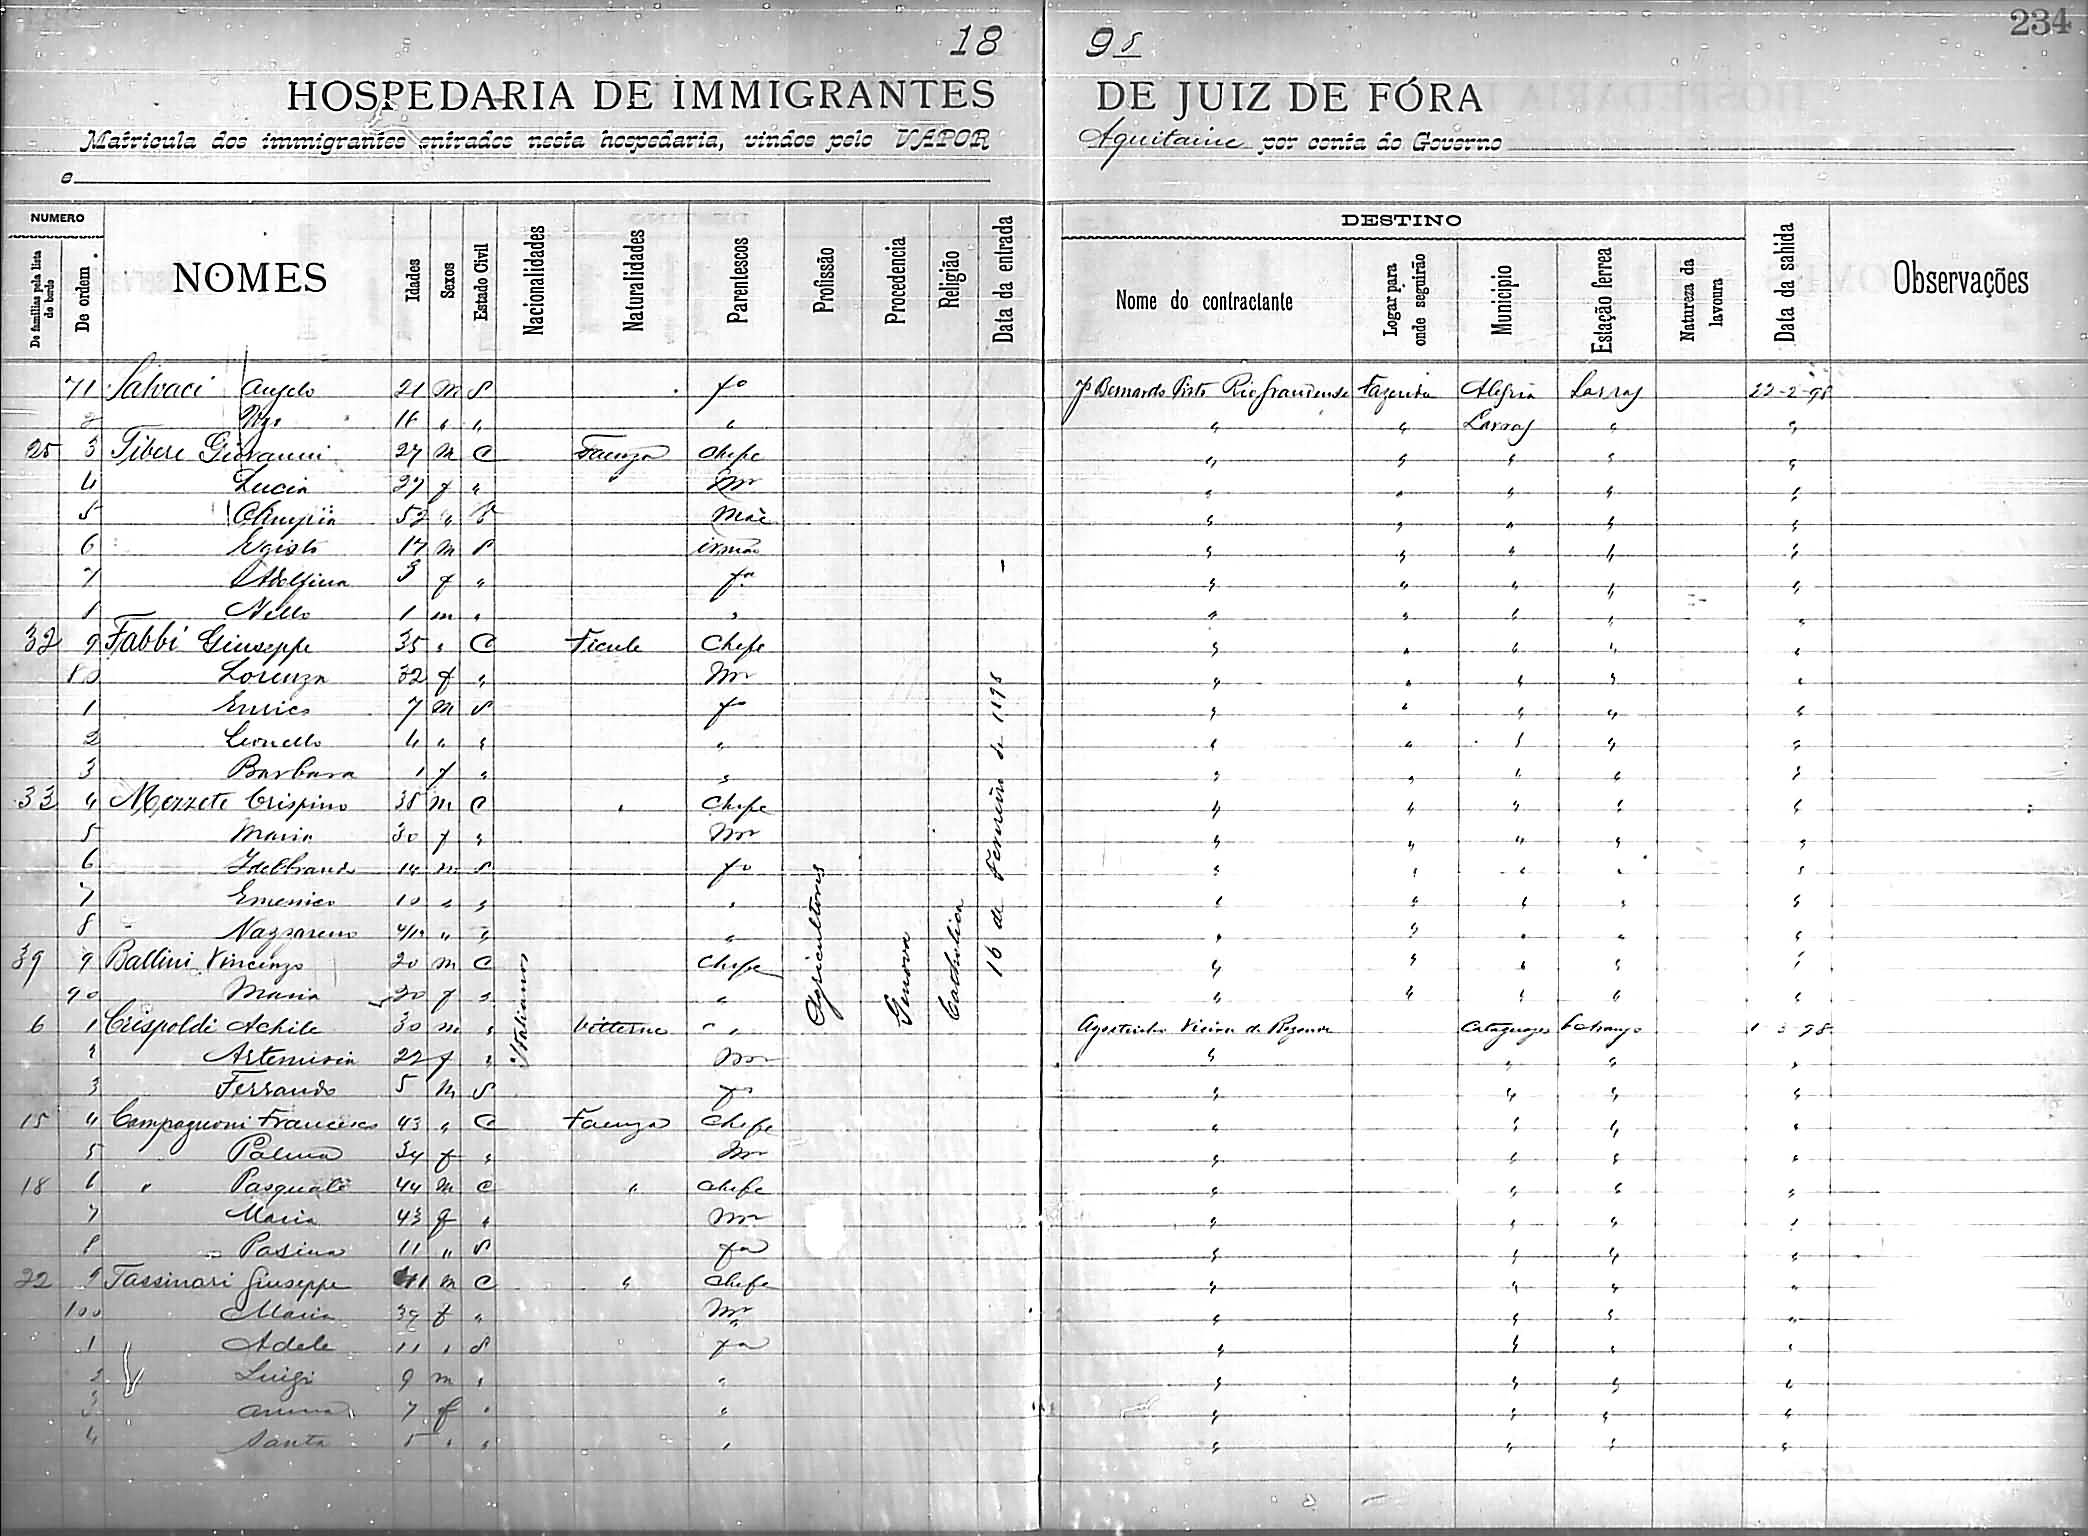 234
18 98
HOSPEDARIA DE IMMIGRANTES DE JUIZ DE FÓRA
Matricula dos immigrantes entrados nesta hospedaria, vindos pelo VAPOR Aquitaine por conta do Governo
e
NUMERO DESTINO
De familias pela lista de bordo De ordem NOMES Idades Sexos Estado Civil Nacionalidades Naturalidades Parentescos Profissão Procedencia Religião Data da entrada Nome do contractante Logar para onde seguirão Municipio Estação ferrea Natureza da lavoura Data da sahida Observações
71 Salvaci Angelo 21 m S fo Bernardo Pinto Rio grandense Fazenda Alegria Lavras 22-2-98
2 16 " " " " " Lavras " "
25 3 Tibere Giovanni 27 m C Faenza Chefe " " " " "
4 Lucia 27 f " Mr " " " " "
5 Olimpia 52 " Mãe " " " " "
6 Egisto 17 m S irmão " " " " "
7 Adolfina 3 f " fa " " " " "
8 Nello 1 m " " " " " " "
32 9 Fabbi Giuseppe 35 " C Ficule Chefe " " " " "
80 Lorenza 32 f " Mr " " " " "
1 Enrico 7 m S fo " " " " "
2 Leonello 4 " " " " " " " "
3 Barbara 1 f " " " " " " "
33 4 Mezzete Crispino 38 m C " Chefe " " " " "
5 Maria 30 f " Mr " " " " "
6 Ildebrando 14 m S fo " " " " "
7 10 " " " " " " " "
8 Nazzareno 4/12 " " " " " " " "
39 9 Ballini Vincenzo 20 m C Chefe " " " " "
90 Maria 20 f " " " " " " "
6 1 Crispoldi Achile 30 m " Vitterno " " Agostinho Vieira de Rezende Cataguazes
2 Artemisia 22 f " Mr " " " "
3 Fernando 5 m S fo " " " "
15 4 Compagnoni Francesco 43 " C Faenza Chefe " " " "
5 Palma 34 f " Mr " " " "
18 6 " Pasquale 44 m C " Chefe " " " "
7 Maria 43 f " Mr " " " "
8 Pasina 11 " S fa " " " "
22 9 Tassinari Giuseppe 41 m C " Chefe " " " "
100 Maria 39 f " Mr " " " "
1 Adele 11 " S fa " " " "
2 Luigi 9 m " " " " " "
3 Anna 7 f " " " " " "
4 Santa " " " " " " "
Italianos
Agricultores
Genova
Catholica
16 de Fevereiro de 1898